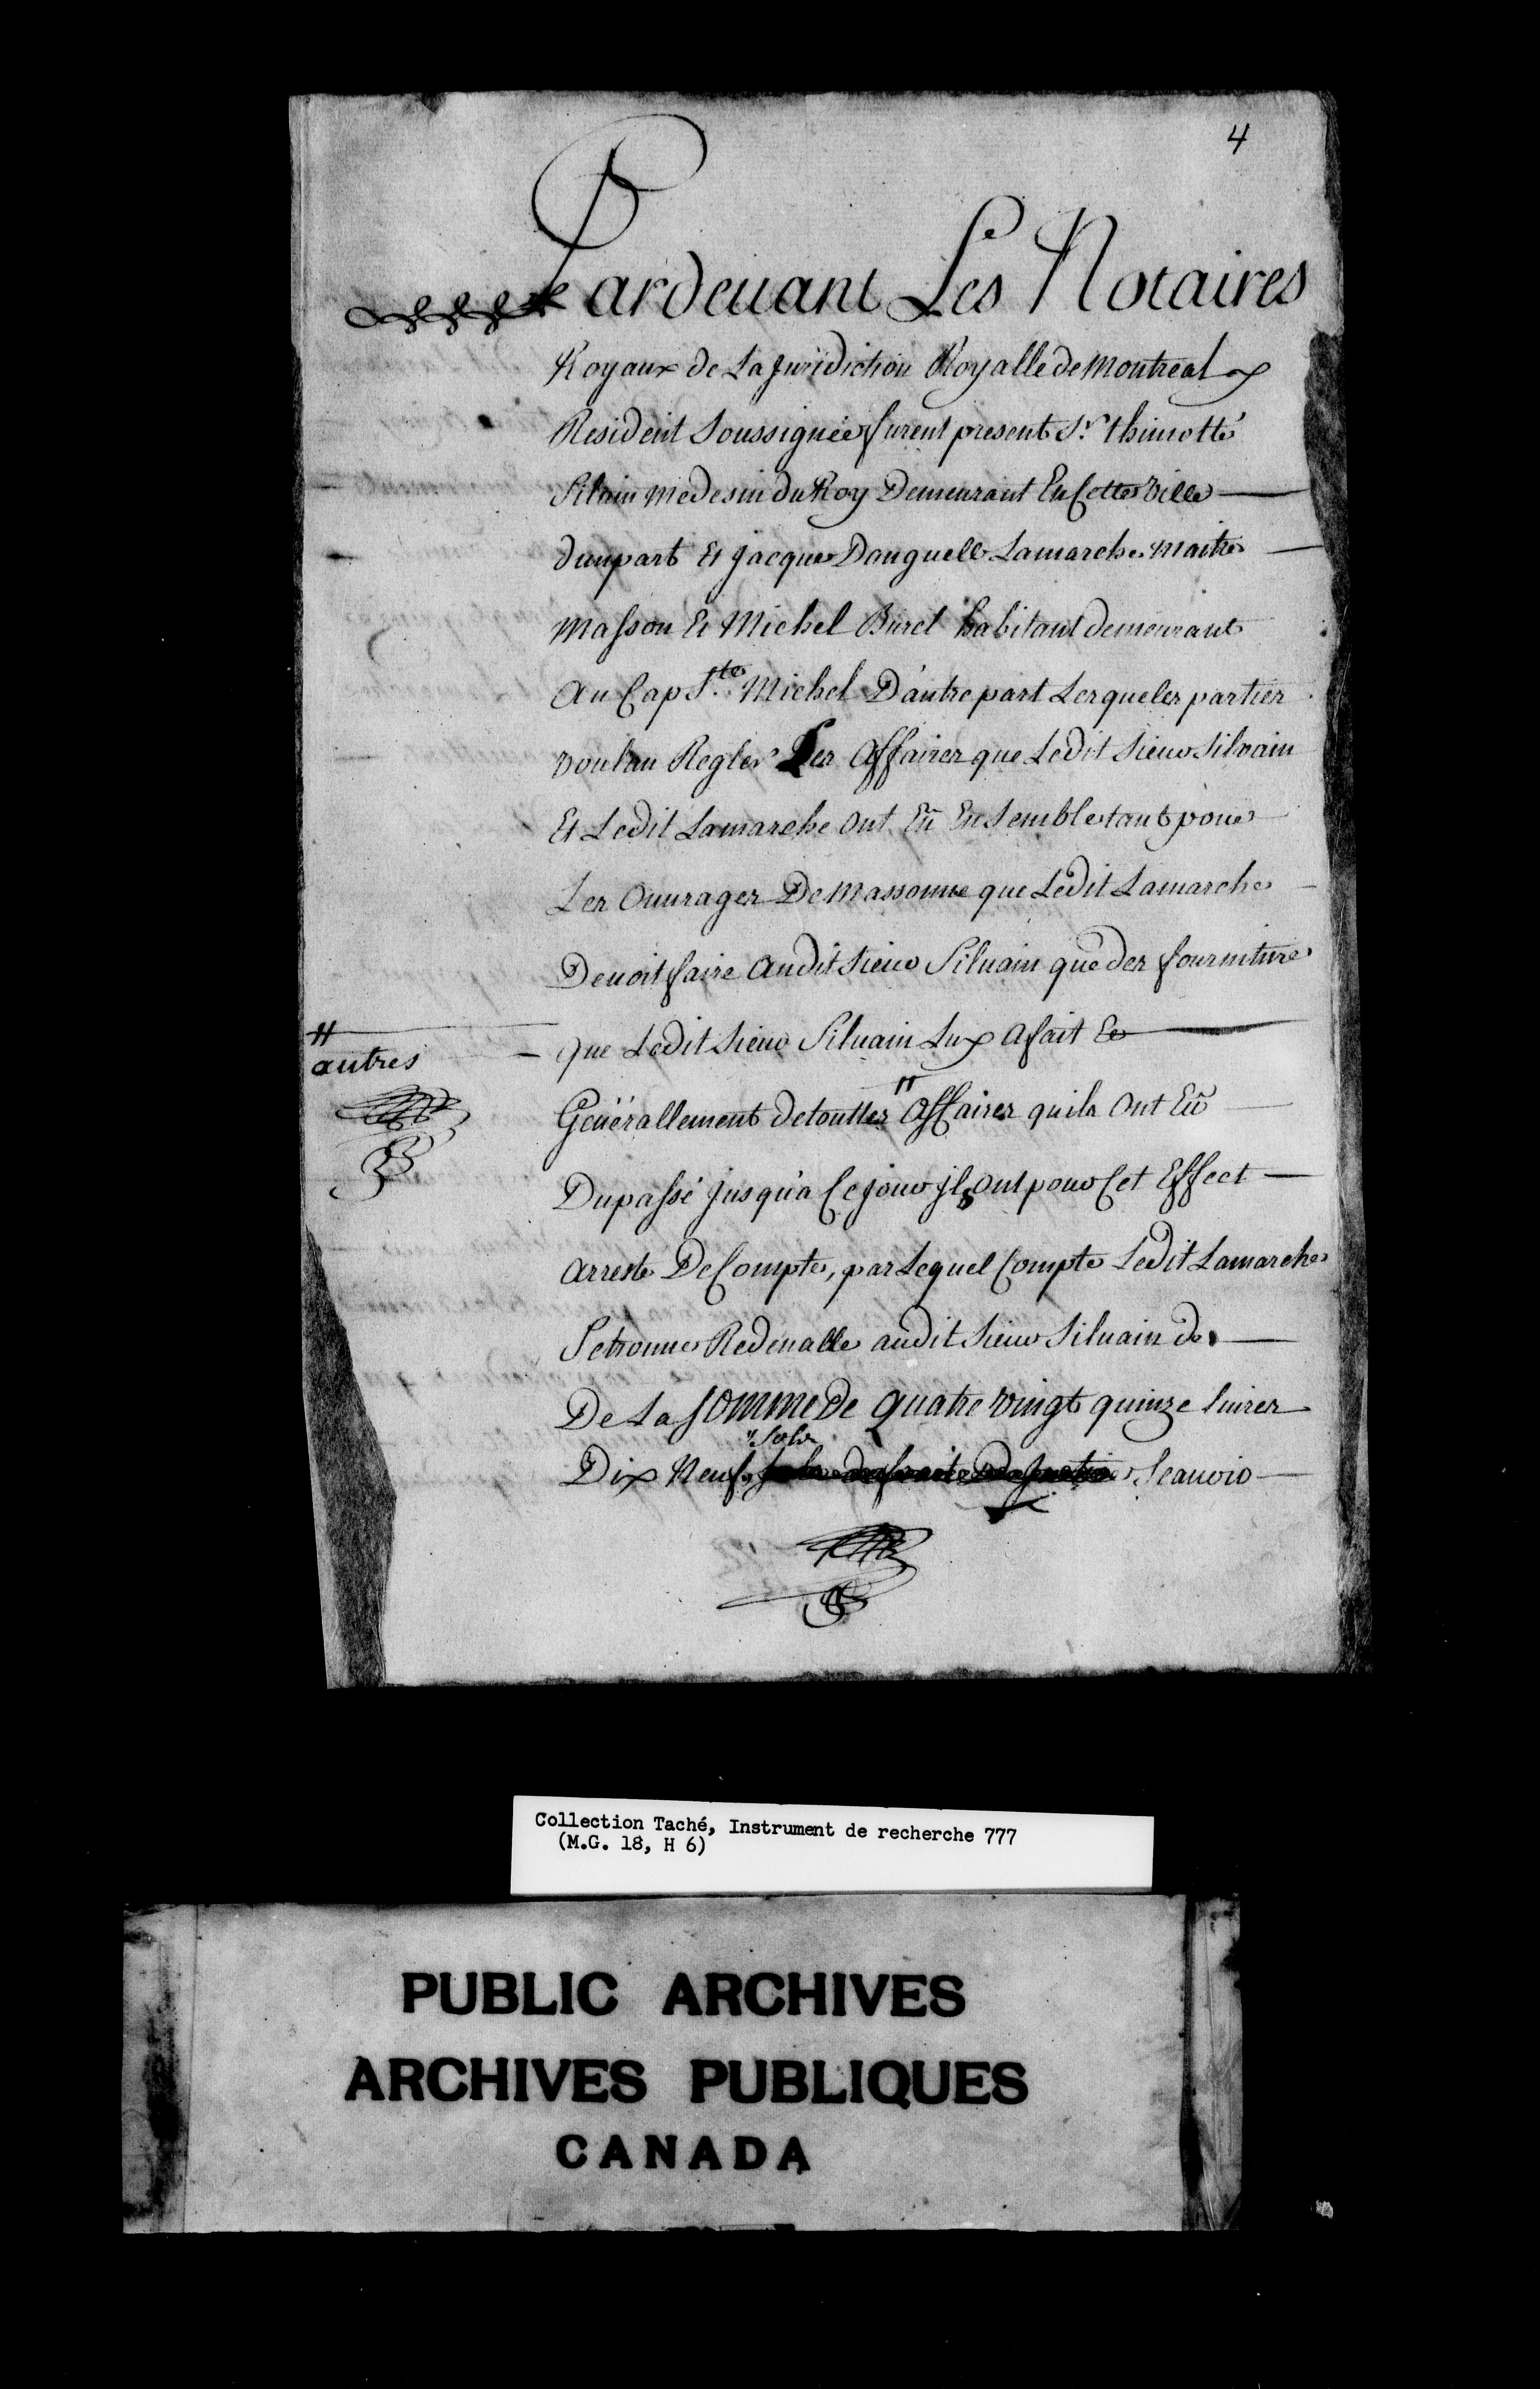 4
Pardevant Les Notaires
Royaux de La Juridiction Royalle de Montreal
Resident Soussignée furent present Sr. thimotté
Silvain medesin du Roy Demeurant En Cette Ville
dunpart Et jacque Danguelle Lamarche Maitre
Masson Et Michel Buret habitant demeurant
Au Cap Ste. Michel D'autre part Lesqueles parties
voulan Regler Les Affaires que Ledit Sieur Silvain
Et Ledit Lamarche ont Eü Ensemble tant pour
Les Ouvrages De Massonne que Ledit Lamarche
Devoit faire Audit Sieur Silvain que des fourniture
que Ledit Sieur Silvain Luy a fait Et
autres
Generallement de touttes " Affaires quils Ont Eü
Du passé jusqu'a Ce jour jls ont pour Cet Effect
Arresté De Compte, par Lequel Compte Ledit Lamarche
Se trouve Redevalle audit Sieur Silvain de
De La somme De quatre vingt quinze livres
" Sols
Dix Neuf Scavoir
Collection Taché, Instrument de recherche 777
(M.G. 18, H 6)
PUBLIC ARCHIVES
ARCHIVES PUBLIQUES
CANADA